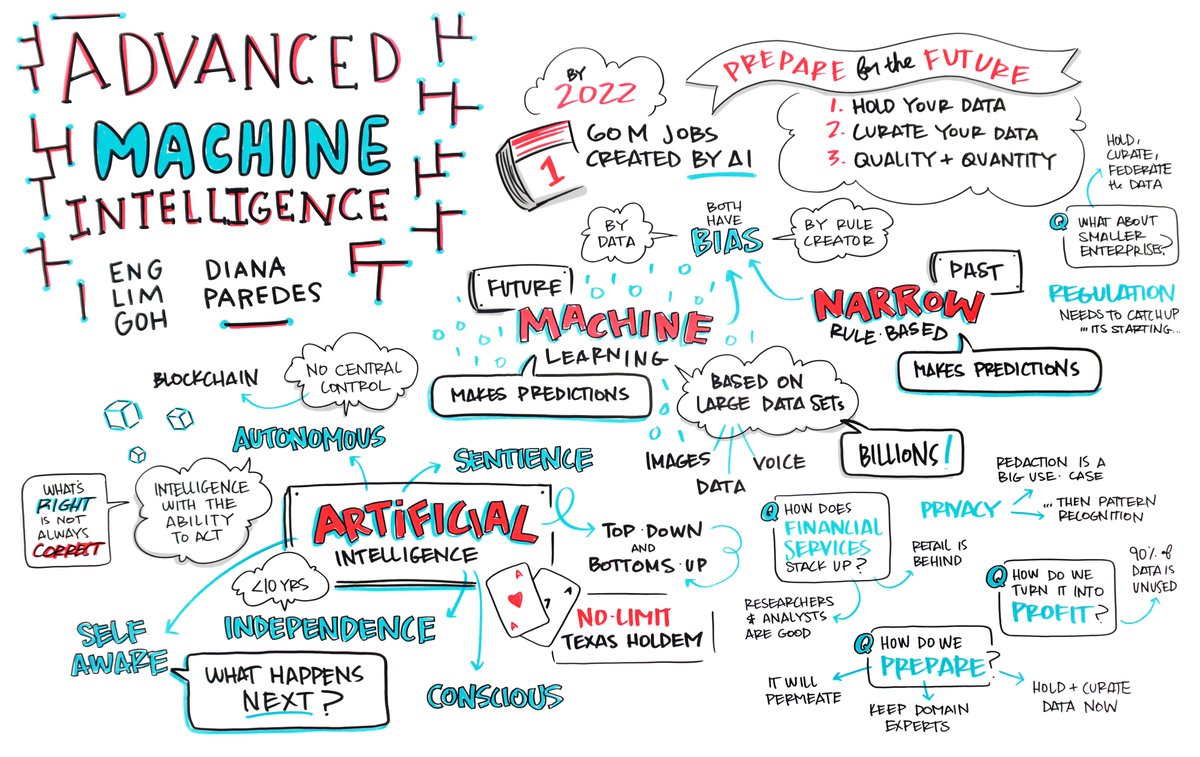 ADVANCED
MACHINE
INTELLIGENCE
ENG
LIM
GOH
DIANA
PAREDES
BY
2022
1
60 M JOBS
CREATED BY AI
PREPARE for the FUTURE
1. HOLD YOUR DATA
2. CURATE YOUR DATA
3. QUALITY + QUANTITY
HOLD,
CURATE,
FEDERATE
the DATA
Q WHAT ABOUT
SMALLER
ENTERPRISES?
REGULATION
NEEDS TO CATCHUP
...ITS STARTING...
BY
DATA
BOTH
HAVE
BIAS
BY RULE
CREATOR
FUTURE
MACHINE
LEARNING
MAKES PREDICTIONS
PAST
NARROW
RULE·BASED
MAKES PREDICTIONS
BASED ON
LARGE DATA SETS
BILLIONS!
IMAGES
DATA
VOICE
BLOCKCHAIN
NO CENTRAL
CONTROL
AUTONOMOUS
SENTIENCE
WHAT'S
RIGHT
IS NOT
ALWAYS
CORRECT
INTELLIGENCE
WITH THE
ABILITY
TO ACT
ARTIFICIAL
INTELLIGENCE
<10 YRS
TOP·DOWN
AND
BOTTOMS·UP
A
A
7
NO·LIMIT
TEXAS HOLDEM
SELF
AWARE
INDEPENDENCE
CONSCIOUS
WHAT HAPPENS
NEXT?
Q HOW DOES
FINANCIAL
SERVICES
STACK UP?
RESEARCHERS
& ANALYSTS
ARE GOOD
RETAIL IS
BEHIND
PRIVACY
REDACTION IS A
BIG USE·CASE
...THEN PATTERN
RECOGNITION
Q HOW DO WE
TURN IT INTO
PROFIT?
90% of
DATA IS
UNUSED
Q HOW DO WE
PREPARE?
IT WILL
PERMEATE
KEEP DOMAIN
EXPERTS
HOLD + CURATE
DATA NOW